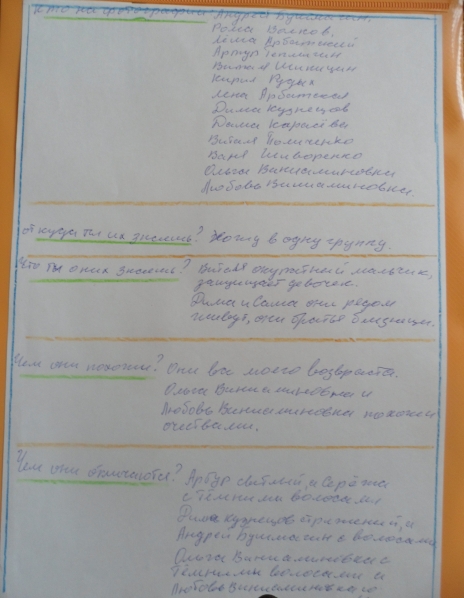 Кто на фотографии Андрей Бушмагин,
Рома Волков,
Лёма Арбитский
Артур Теплягин
Виталя Шипицин
Кирил Рудых
Лена Арбитская
Дима Кузнецов
Дима Карасёва
Виталя Поличенко
Ваня Шиворенко
Ольга Виниаминовна
Любовь Виниаминовна.
Откуда ты их знаешь? Хожу в одну группу.
Что ты о них знаешь? Виталя окуратный мальчик,
защищает девочек.
Дима и Саша они рядом
живут, они братья близнецы.
Чем они похожи? Они все моего возвраста.
Ольга Виниаминовна и
Любовь Виниаминовна похожи
очествами.
Чем они отличаются? Артур светлый, и Серёжа
с тёмными волосами
Дима Кузнецов стриженый, и
Андрей Бушмагин с волосами
Ольга Виниаминовна с
тёмными волосами и
Любовь Виниаминовна